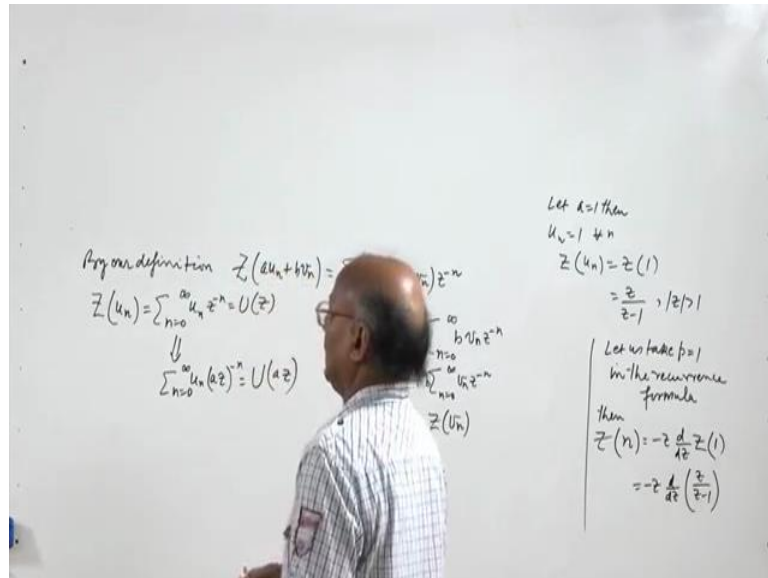 By our definition Z(au_n+bv_n)=
v_n)z^{-n}
Z(u_n)=∑_{n=0}^∞ u_n z^{-n}=U(z)
⇓
∑_{n=0}^∞ u_n(az)^{-n}=U(az)
∞
bv_n z^{-n}
n=0
∑_{n=0}^∞ v_n z^{-n}
Z(v_n)
Let a=1 then
u_n=1 ∀ n
Z(u_n)=Z(1)
=z/(z-1), |z|>1
Let us take p=1
in the recurrence
formula
then
Z(n)=-z d/dz Z(1)
=-z d/dz (z/(z-1))